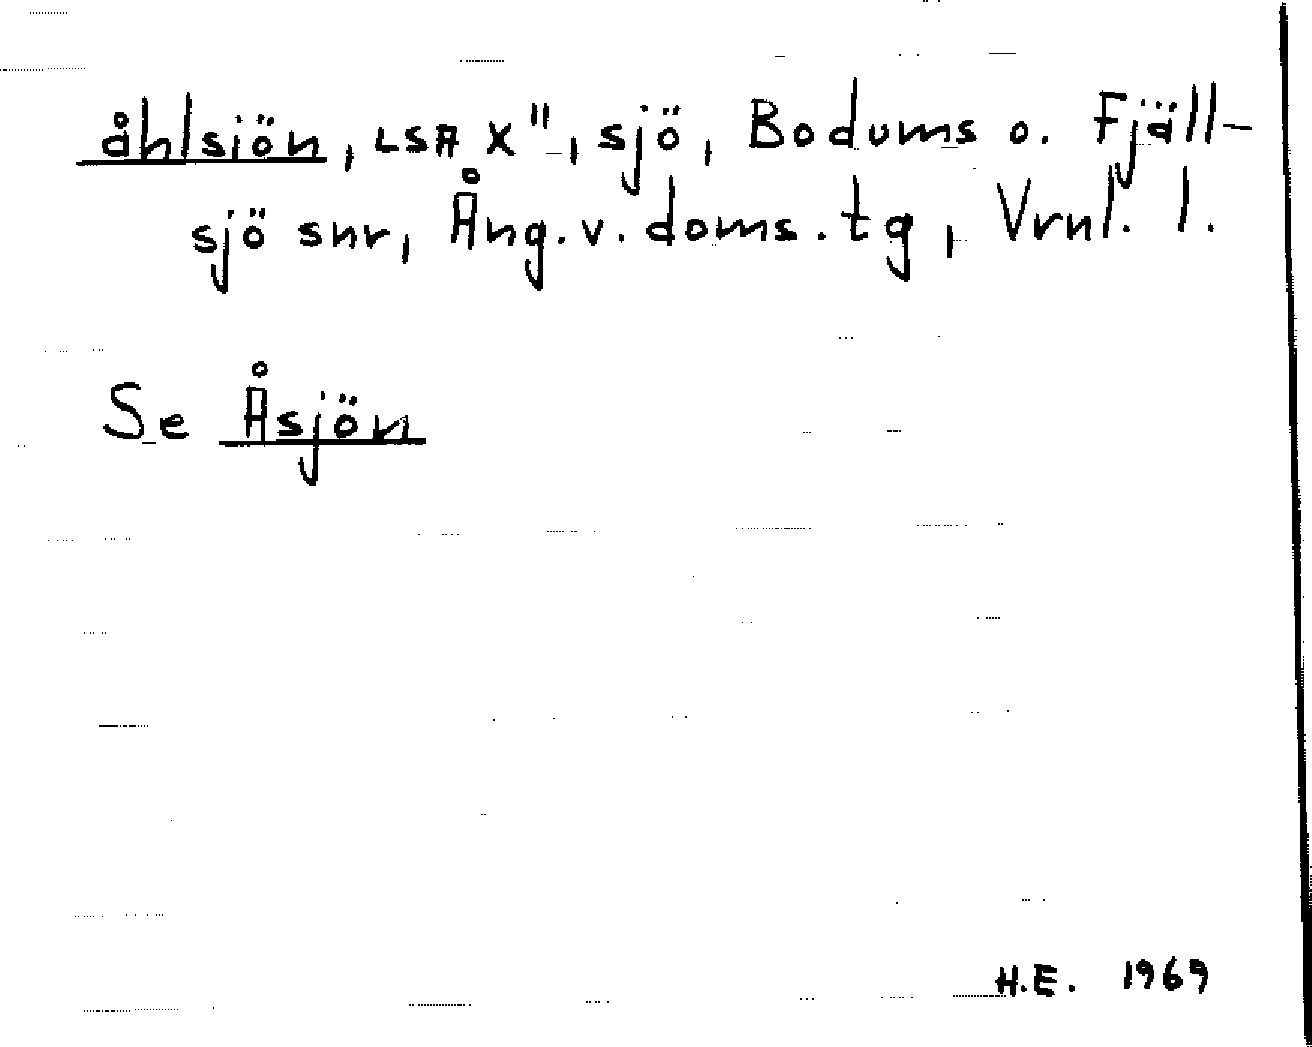 åhlsiön, LSA X", sjö, Bodums o. Fjäll-
sjö snr, Ång. v. doms. tg, Vrnl. l.
Se Åsjön
H.E. 1969